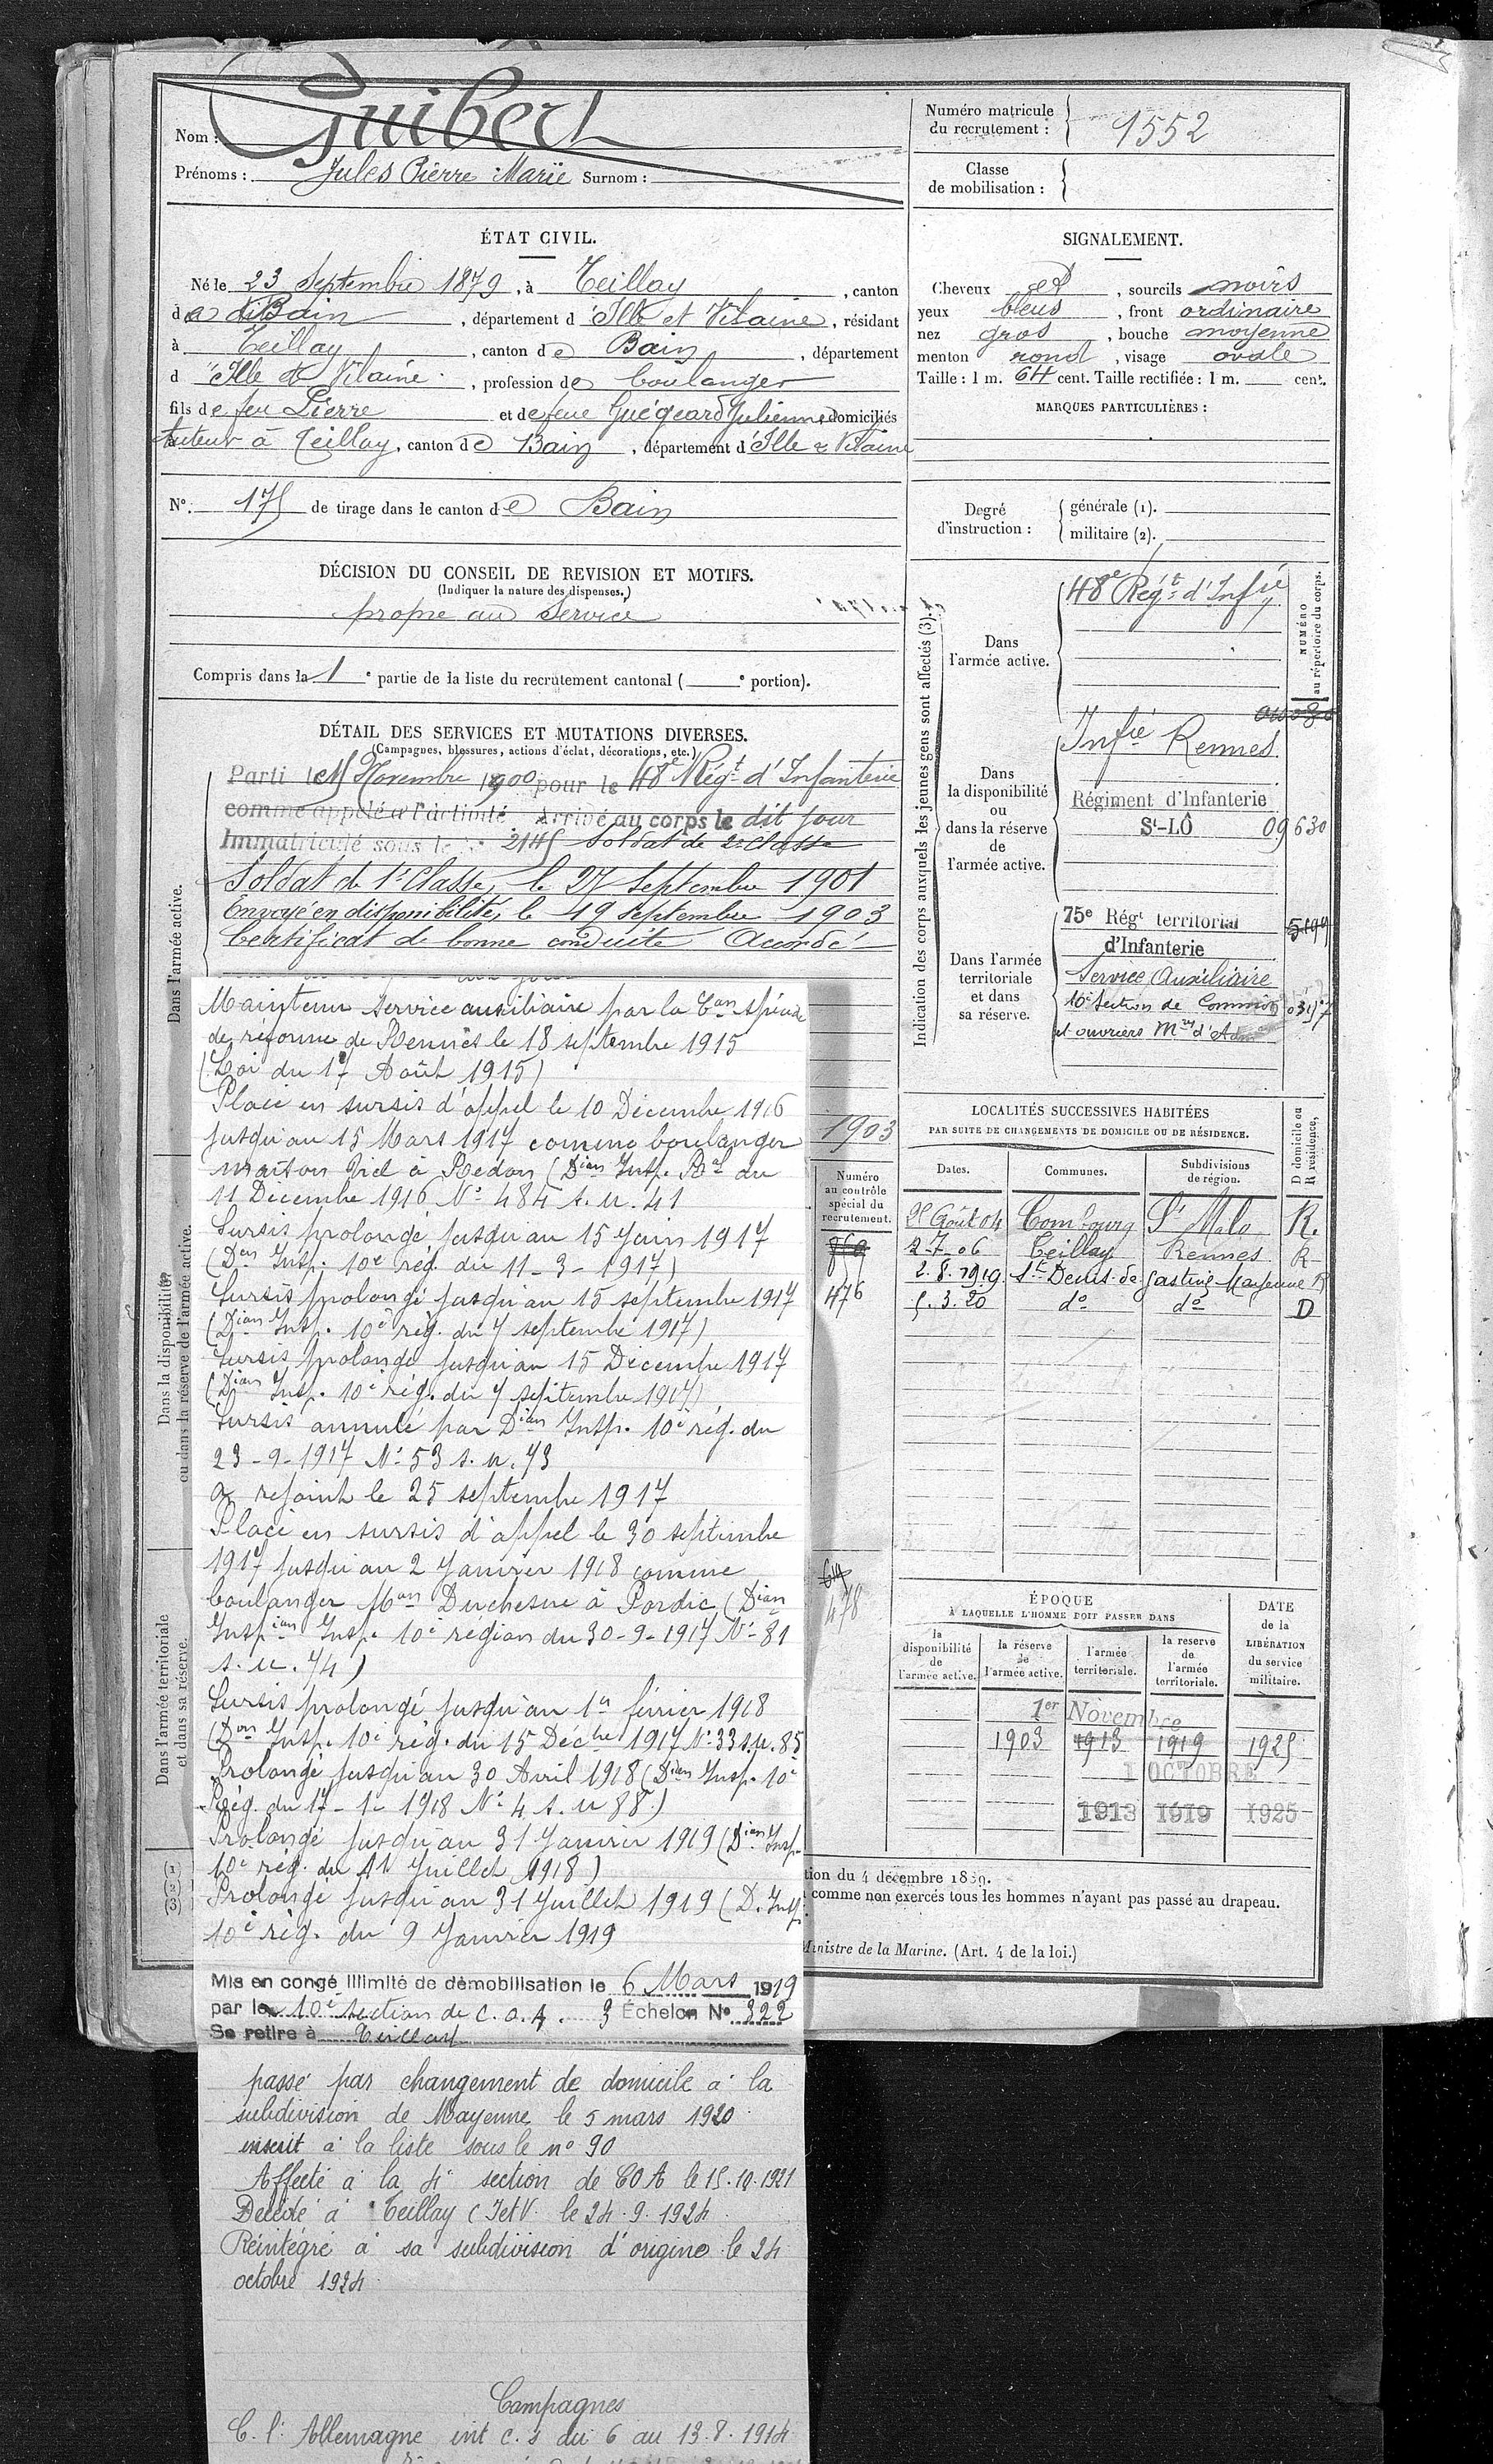 Nom : Guibert
Prénoms : Jules Pierre Marie Surnom :
Numéro matricule du recrutement : 1552
Classe de mobilisation :
ÉTAT CIVIL.
Né le 23 Septembre 1879, à Teillay, canton
de Bain, département d'Ille et Vilaine, résidant
à Teillay, canton de Bain, département
d'Ille et Vilaine, profession de boulanger
fils de feu Pierre et de feue Guégeard Julienne, domiciliés
tuteur à Teillay, canton de Bain, département d'Ille & Vilaine
N° 175 de tirage dans le canton de Bain
SIGNALEMENT.
Cheveux et, sourcils noirs
yeux bleus, front ordinaire
nez gros, bouche moyenne
menton rond, visage ovale
Taille : 1 m. 64 cent. Taille rectifiée : 1 m. cent.
MARQUES PARTICULIÈRES :
Degré d'instruction : générale (1).
militaire (2).
DÉCISION DU CONSEIL DE REVISION ET MOTIFS.
(Indiquer la nature des dispenses.)
propre au service
Compris dans la 1e partie de la liste du recrutement cantonal ( e portion).
DÉTAIL DES SERVICES ET MUTATIONS DIVERSES.
(Campagnes, blessures, actions d'éclat, décorations, etc.)
Dans l'armée active.
Parti le 15 Novembre 1900 pour le 48e Régt d'Infanterie
comme appelé à l'activité Arrivé au corps le dit jour
Immatriculé sous le n° 2145 Soldat de 2e classe
Soldat de 1e Classe, le 27 Septembre 1901
Envoyé en disponibilité, le 19 septembre 1903
Certificat de bonne conduite Accordé
Maintenu service auxiliaire par la Con spéciale
de réforme de Rennes le 18 septembre 1915
(Loi du 17 Août 1915)
Placé en sursis d'appel le 10 Décembre 1916
jusqu'au 15 Mars 1917 comme boulanger
maison Viel à Redon (Dion Insp. Ral du
11 Décembre 1916 N° 484 s. u. 41
Sursis prolongé jusqu'au 15 Juin 1917
(Don Insp. 10e rég. du 11-3-1917)
Sursis prolongé jusqu'au 15 septembre 1917
(Dion Insp. 10e rég. du 7 septembre 1917)
Sursis prolongé jusqu'au 15 Décembre 1917
(Dion Insp. 10e rég. du 7 septembre 1917)
Sursis annulé par Dion Insp. 10e rég. du
23-9-1917 N° 53 s. u. 73
a rejoint le 25 septembre 1917
Placé en sursis d'appel le 30 septembre
1917 jusqu'au 2 Janvier 1918 comme
boulanger Mon Duchesne à Pordic (Dion
Inspion Insp. 10e région du 30-9-1917 N° 81
s. u. 74)
Sursis prolongé jusqu'au 1er février 1918
(Don Insp. 10e rég. du 15 Décbre 1917 N° 33 s.u. 85
Prolongé jusqu'au 30 Avril 1918 (Dion Insp. 10e
Rég. du 17-1-1918 N° 4 s. u 88)
Prolongé jusqu'au 31 Janvier 1919 (Dion Insp.
10e rég. du 11 Juillet 1918)
Prolongé jusqu'au 31 Juillet 1919 (D. Insp.
10e rég. du 9 Janvier 1919
Mis en congé illimité de démobilisation le 6 Mars 1919
par la 10e section de C.O.A. 3 Échelon N° 322
Se retire à Teillay
passé par changement de domicile à la
subdivision de Mayenne le 5 mars 1920
inscrit à la liste sous le n° 90
Affecté à la 4e section de COA le 15.10.1921
Décédé à Teillay (I et V. le 24.9.1924
Réintégré à sa subdivision d'origine le 24
octobre 1924
Campagnes
C. l: Allemagne int c. s du 6 au 13.8.1914
Dans la disponibilité ou dans la réserve de l'armée active.
Dans l'armée territoriale et dans sa réserve.
(1)
(2)
(3)
1903
Numéro au contrôle spécial du recrutement.
869
476
478
Indication des corps auxquels les jeunes gens sont affectés (3).
NUMÉRO au répertoire du corps.
Dans l'armée active.
48e Régt d'Infie
Dans la disponibilité ou dans la réserve de l'armée active.
Infie Rennes
Régiment d'Infanterie
St-LÔ 09630
Dans l'armée territoriale et dans sa réserve.
75e Régt territorial
d'Infanterie
Service Auxiliaire
10e Section de Commis
et ouvriers Mres d'Adm
LOCALITÉS SUCCESSIVES HABITÉES
PAR SUITE DE CHANGEMENTS DE DOMICILE OU DE RÉSIDENCE.
Dates. Communes. Subdivisions de région. D domicile ou R résidence.
25 Août 04 Combourg St Malo R.
2-7-06 Teillay Rennes R
2.8.1919 St Denis de Gastines Mayenne R
5.3.20 do do D
ÉPOQUE
À LAQUELLE L'HOMME DOIT PASSER DANS
la disponibilité de l'armée active. la réserve de l'armée active. l'armée territoriale. la reserve de l'armée territoriale.
DATE de la LIBÉRATION du service militaire.
1er Novembre
1903 1913 1919 1925
1 OCTOBRE
1913 1919 1925
tion du 4 décembre 1889.
comme non exercés tous les hommes n'ayant pas passé au drapeau.
Ministre de la Marine. (Art. 4 de la loi.)